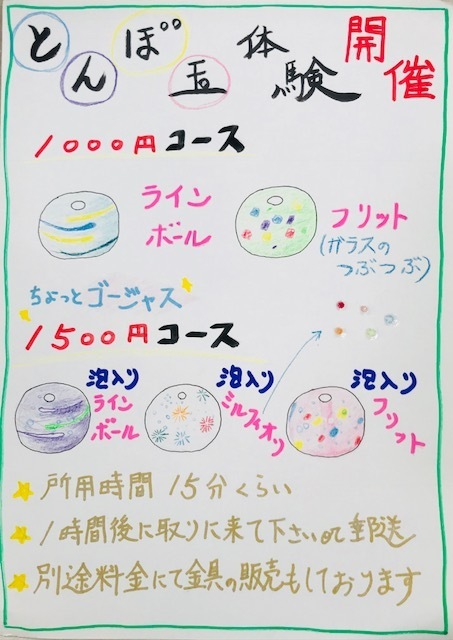 とんぼ玉体験開催
1000円コース
ライン
ボール
フリット
(ガラスの
つぶつぶ)
ちょっとゴージャス
1500円コース
泡入り
ライン
ボール
泡入り
ミルフィオリ
泡入り
フリット
所用時間 15分くらい
1時間後に取りに来て下さいor郵送
別途料金にて金具の販売もしております